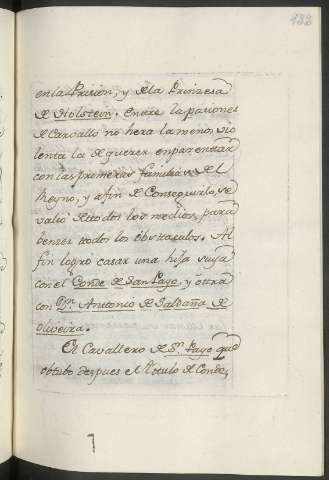 132
en la Prision, y de la Prinzesa
de Holstein. Entre las pasiones
de Carvallo no hera la menos vio
lenta la de querer enparentar
con las primeras familias del
Reyno, y a fin de Conseguirlo, se
valió de todos los medios, para
benzer todos los obstaculos. Al
fin logró casar una hija suya
con el Conde de San Payo, y otra
con Dn. Antonio de Saldaña de
Oliveira.
El Cavallero de Sn. Payo que
obtubo despues el Titulo de Conde,